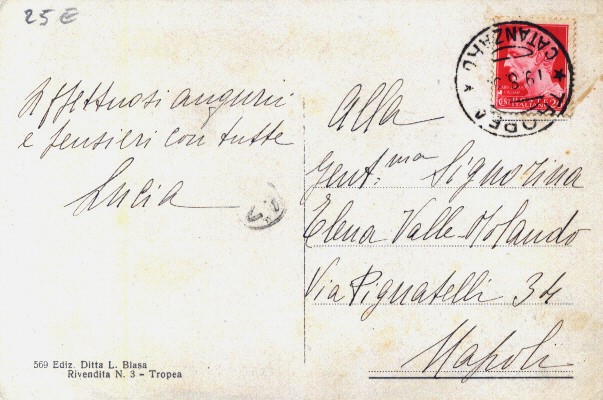 25 €
Affettuosi auguri
e pensieri con tutte
Lucia
569 Ediz. Ditta L. Blasa
Rivendita N. 3 - Tropea
TROPEA
CATANZARO
Alla
Gent.ma Signorina
Elena Valle-Molando
Via Pignatelli 34
Napoli